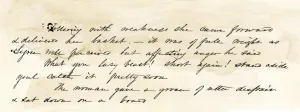 Tottering with weakness she came forward
& delivered her basket, — it was of full weight as
Legree well perceived but affecting anger he said
What you lazy beast! short again! stand aside
you'll catch it pretty soon
The woman gave a groan of utter despair
& sat down on a board